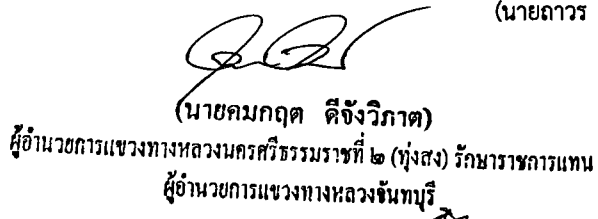 (นายถาวร
(นายคมกฤต ดีจังวิภาต)
ผู้อำนวยการแขวงทางหลวงนครศรีธรรมราชที่ ๒ (ทุ่งสง) รักษาราชการแทน
ผู้อำนวยการแขวงทางหลวงจันทบุรี